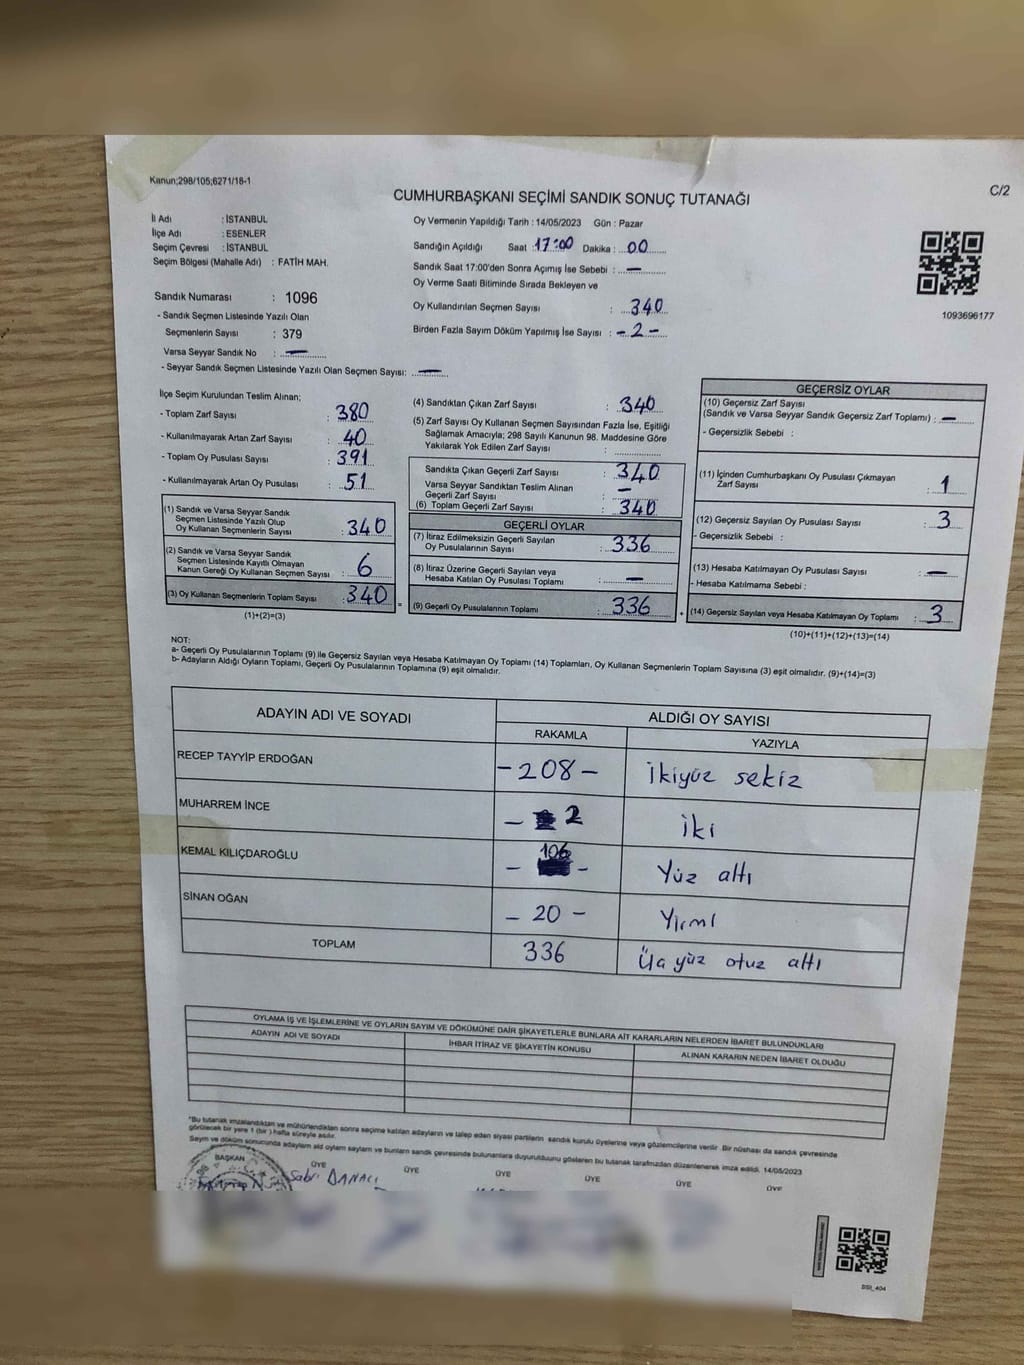 Kanun;298/105;6271/18-1
C/2
CUMHURBAŞKANI SEÇİMİ SANDIK SONUÇ TUTANAĞI
İl Adı : İSTANBUL
İlçe Adı : ESENLER
Seçim Çevresi : İSTANBUL
Seçim Bölgesi (Mahalle Adı) : FATİH MAH.
Sandık Numarası : 1096
- Sandık Seçmen Listesinde Yazılı Olan
Seçmenlerin Sayısı : 379
Varsa Seyyar Sandık No : —
- Seyyar Sandık Seçmen Listesinde Yazılı Olan Seçmen Sayısı: —
Oy Vermenin Yapıldığı Tarih : 14/05/2023 Gün : Pazar
Sandığın Açıldığı Saat : 17:00 Dakika : 00
Sandık Saat 17:00'den Sonra Açımış İse Sebebi : —
Oy Verme Saati Bitiminde Sırada Bekleyen ve
Oy Kullandırılan Seçmen Sayısı : 340
Birden Fazla Sayım Döküm Yapılmış İse Sayısı : - 2 -
1093696177
İlçe Seçim Kurulundan Teslim Alınan;
- Toplam Zarf Sayısı : 380
- Kullanılmayarak Artan Zarf Sayısı : 40
- Toplam Oy Pusulası Sayısı : 391
- Kullanılmayarak Artan Oy Pusulası : 51
(1) Sandık ve Varsa Seyyar Sandık
Seçmen Listesinde Yazılı Olup
Oy Kullanan Seçmenlerin Sayısı : 340
(2) Sandık ve Varsa Seyyar Sandık
Seçmen Listesinde Kayıtlı Olmayan
Kanun Gereği Oy Kullanan Seçmen Sayısı : 6
(3) Oy Kullanan Seçmenlerin Toplam Sayısı : 340
(1)+(2)=(3)
(4) Sandıktan Çıkan Zarf Sayısı : 340
(5) Zarf Sayısı Oy Kullanan Seçmen Sayısından Fazla İse, Eşitliği
Sağlamak Amacıyla; 298 Sayılı Kanunun 98. Maddesine Göre
Yakılarak Yok Edilen Zarf Sayısı :
Sandıkta Çıkan Geçerli Zarf Sayısı : 340
Varsa Seyyar Sandıktan Teslim Alınan
Geçerli Zarf Sayısı : —
(6) Toplam Geçerli Zarf Sayısı : 340
GEÇERLİ OYLAR
(7) İtiraz Edilmeksizin Geçerli Sayılan
Oy Pusulalarının Sayısı : 336
(8) İtiraz Üzerine Geçerli Sayılan veya
Hesaba Katılan Oy Pusulası Toplamı : —
(9) Geçerli Oy Pusulalarının Toplamı : 336
GEÇERSİZ OYLAR
(10) Geçersiz Zarf Sayısı
(Sandık ve Varsa Seyyar Sandık Geçersiz Zarf Toplamı) : —
- Geçersizlik Sebebi :
(11) İçinden Cumhurbaşkanı Oy Pusulası Çıkmayan
Zarf Sayısı : 1
(12) Geçersiz Sayılan Oy Pusulası Sayısı : 3
- Geçersizlik Sebebi :
(13) Hesaba Katılmayan Oy Pusulası Sayısı : —
- Hesaba Katılmama Sebebi :
(14) Geçersiz Sayılan veya Hesaba Katılmayan Oy Toplamı : 3
(10)+(11)+(12)+(13)=(14)
NOT:
a- Geçerli Oy Pusulalarının Toplamı (9) ile Geçersiz Sayılan veya Hesaba Katılmayan Oy Toplamı (14) Toplamları, Oy Kullanan Seçmenlerin Toplam Sayısına (3) eşit olmalıdır. (9)+(14)=(3)
b- Adayların Aldığı Oyların Toplamı, Geçerli Oy Pusulalarının Toplamına (9) eşit olmalıdır.
ADAYIN ADI VE SOYADI ALDIĞI OY SAYISI
RAKAMLA YAZIYLA
RECEP TAYYİP ERDOĞAN - 208 - İkiyüz sekiz
MUHARREM İNCE - 2 İki
KEMAL KILIÇDAROĞLU - 106 - Yüz altı
SİNAN OĞAN - 20 - Yirmi
TOPLAM 336 Üç yüz otuz altı
OYLAMA İŞ VE İŞLEMLERİNE VE OYLARIN SAYIM VE DÖKÜMÜNE DAİR ŞİKAYETLERLE BUNLARA AİT KARARLARIN NELERDEN İBARET BULUNDUKLARI
ADAYIN ADI VE SOYADI İHBAR İTİRAZ VE ŞİKAYETİN KONUSU ALINAN KARARIN NEDEN İBARET OLDUĞU
"Bu tutanak imzalandıktan ve mühürlendikten sonra seçime katılan adayların ve talep eden siyasi partilerin sandık kurulu üyelerine veya gözlemcilerine verilir. Bir nüshası da sandık çevresinde
görülecek bir yere 1 (bir) hafta süreyle asılır.
Sayım ve döküm sonucunda adayların ald oyların sayıları ve bunların sandık çevresinde bulunanlara duyurulduğunu gösteren bu tutanak tarafımızdan düzenlenerek imza edildi. 14/05/2023
BAŞKAN ÜYE ÜYE ÜYE ÜYE ÜYE ÜYE
Sabri DANACI
BSI_404